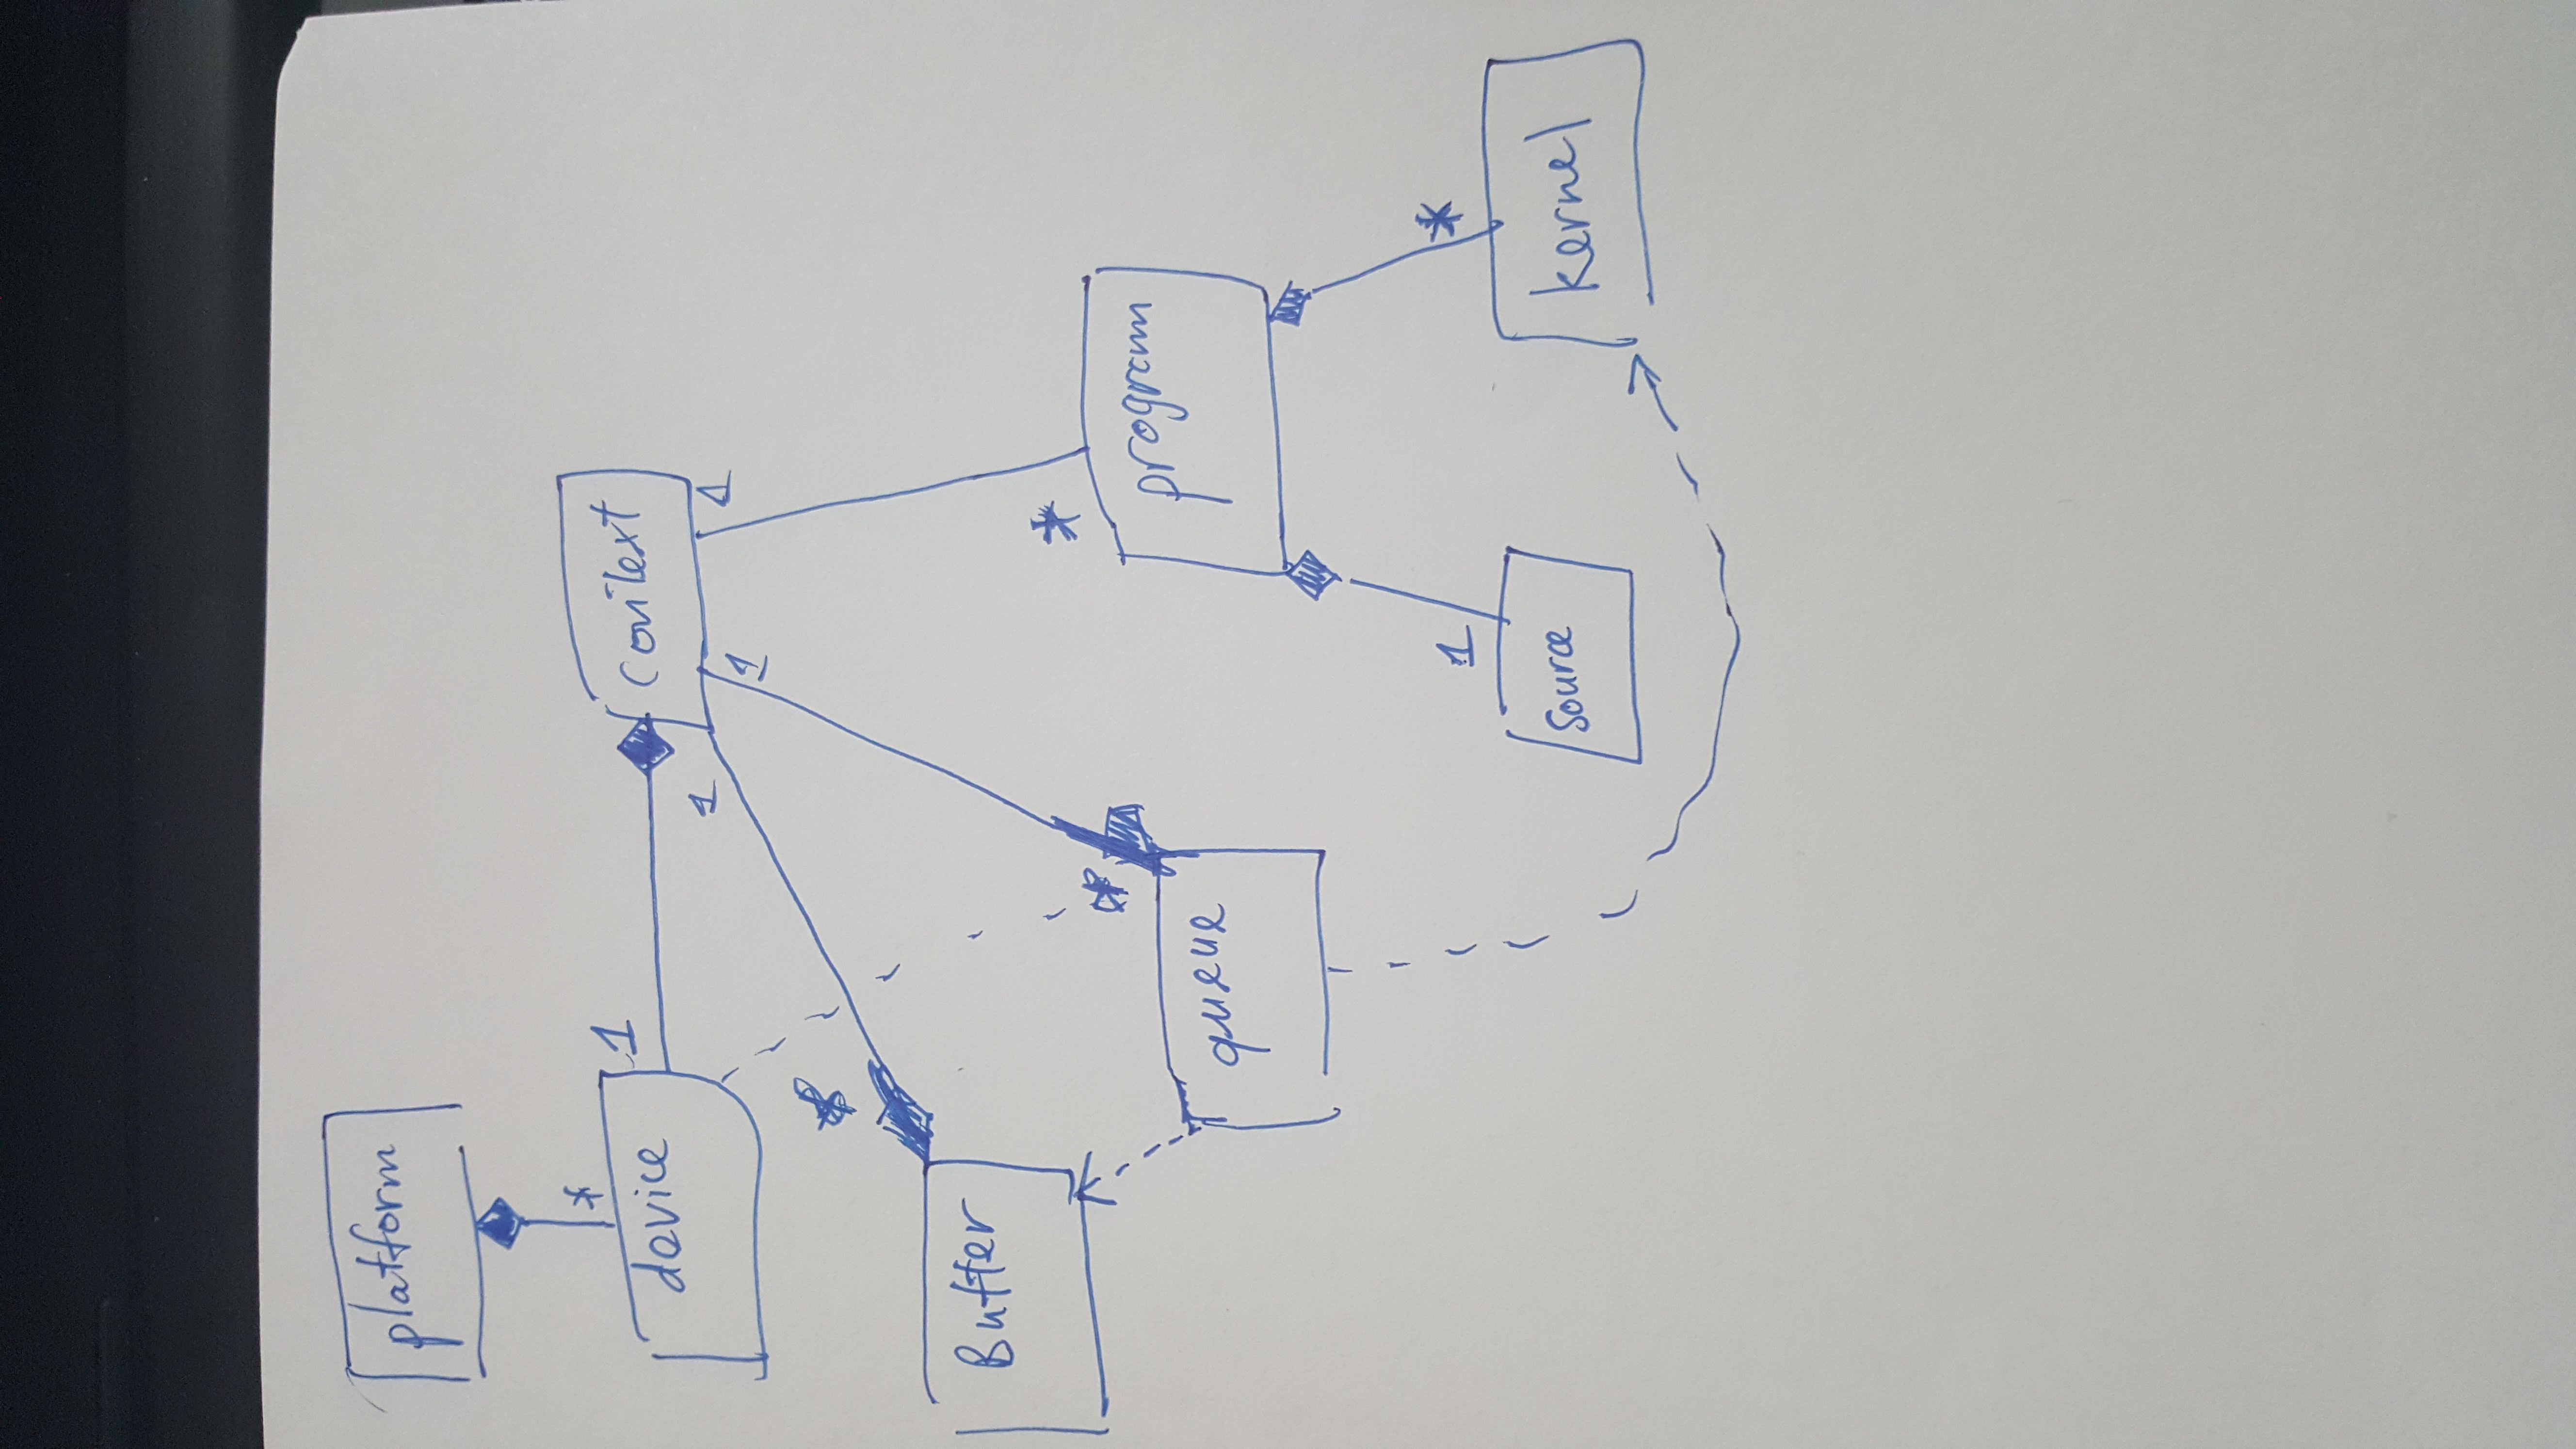 platform
*
device
1
context
1
1
1
*
Buffer
*
*
program
queue
1
*
Source
kernel